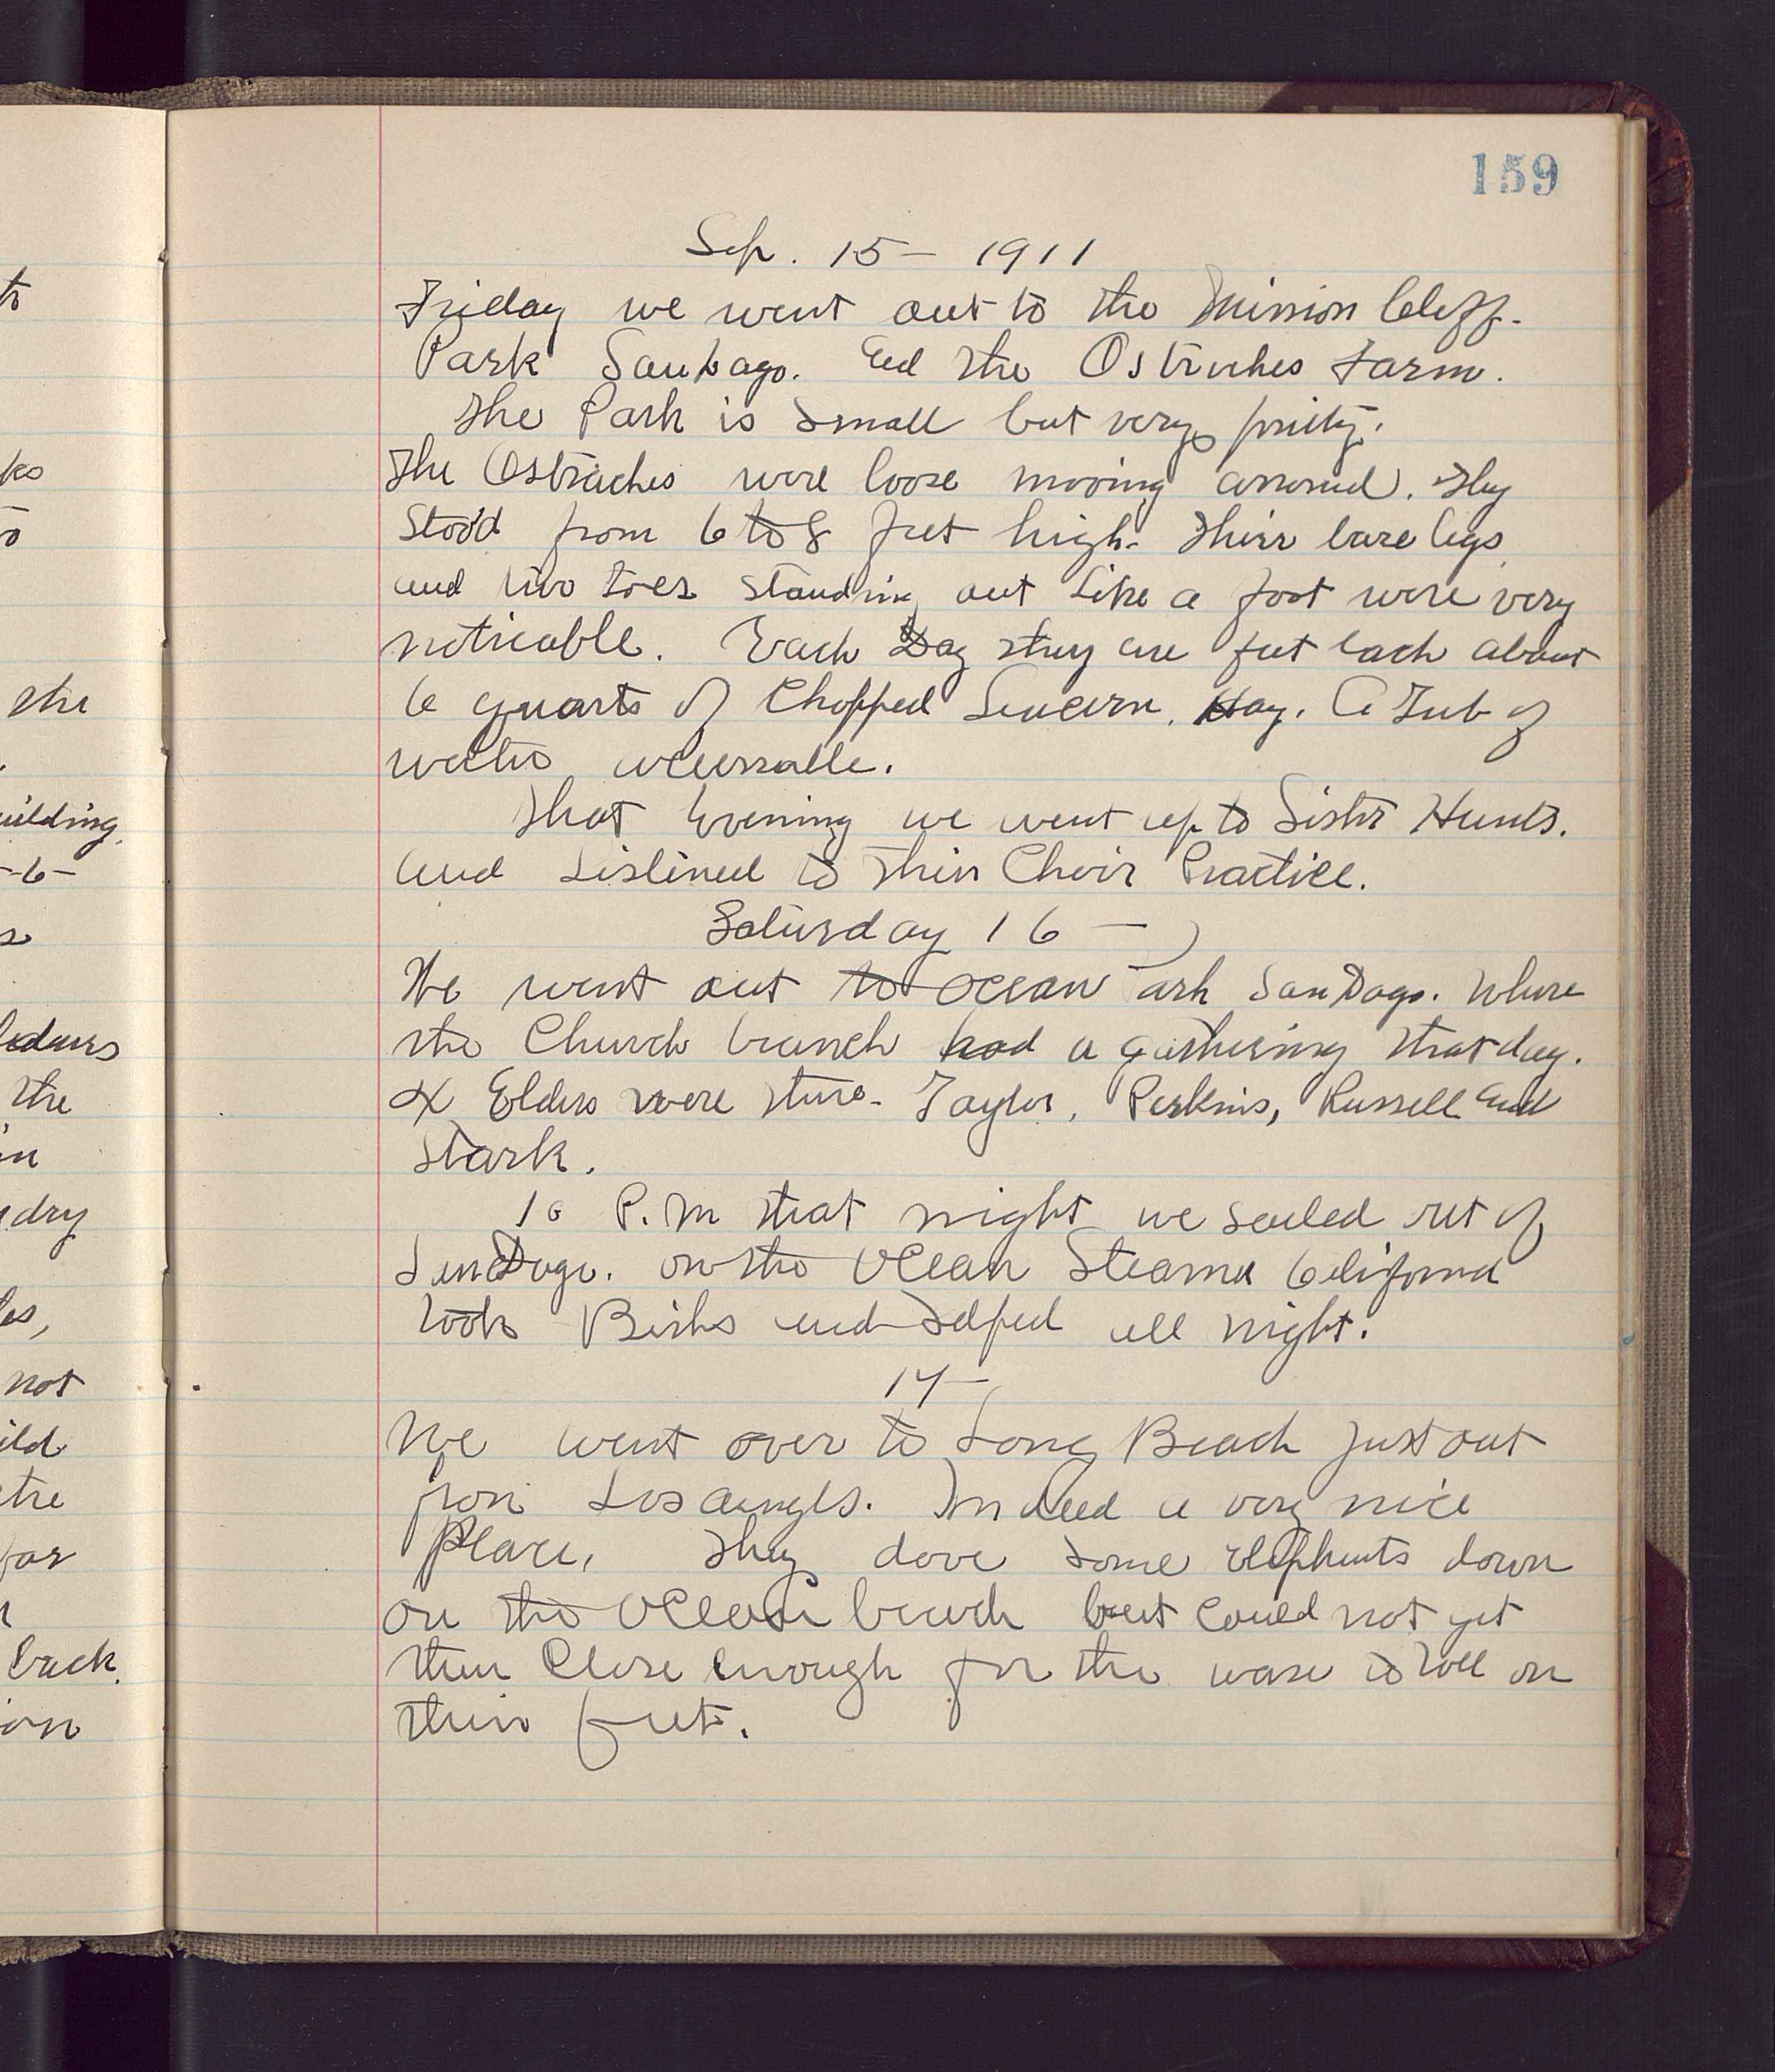 159
Sep. 15 - 1911
Friday we went out to the Mission Cliff.
Park SanDago. and the Ostriches Farm.
The Park is small but very pritty.
The Ostriches were loose moving arround. They
stood from 6 to 8 feet high. Thirr bare legs
and two toes standing out like a foot were very
noticable. Each Day they are fed each about
6 quarts of Chopped Lucern. Hay. A Tub of
water accessable.
That Evening we went up to Sister Hunts.
and Listined to Thir Choir Practice.
Saturday 16 -
We went out to Ocean ark SanDago. Where
the Church branch had a gathering that day.
4 Elders were there. Taylor, Perkins, Russell and
Stark.
10 P.M that night we sailed out of
SanDago. on the Ocean Steamer California
took Births and all night.
17 -
We went over to Long Beach just out
from Los angls. Indeed a very nice
Place. They dove some elephents down
on the Ocean beach but could not get
them close enough for the wave to roll on
their feet.
to
ks
to
the
uilding.
-6-
the
in
dry
les,
not
ild
the
for
back.